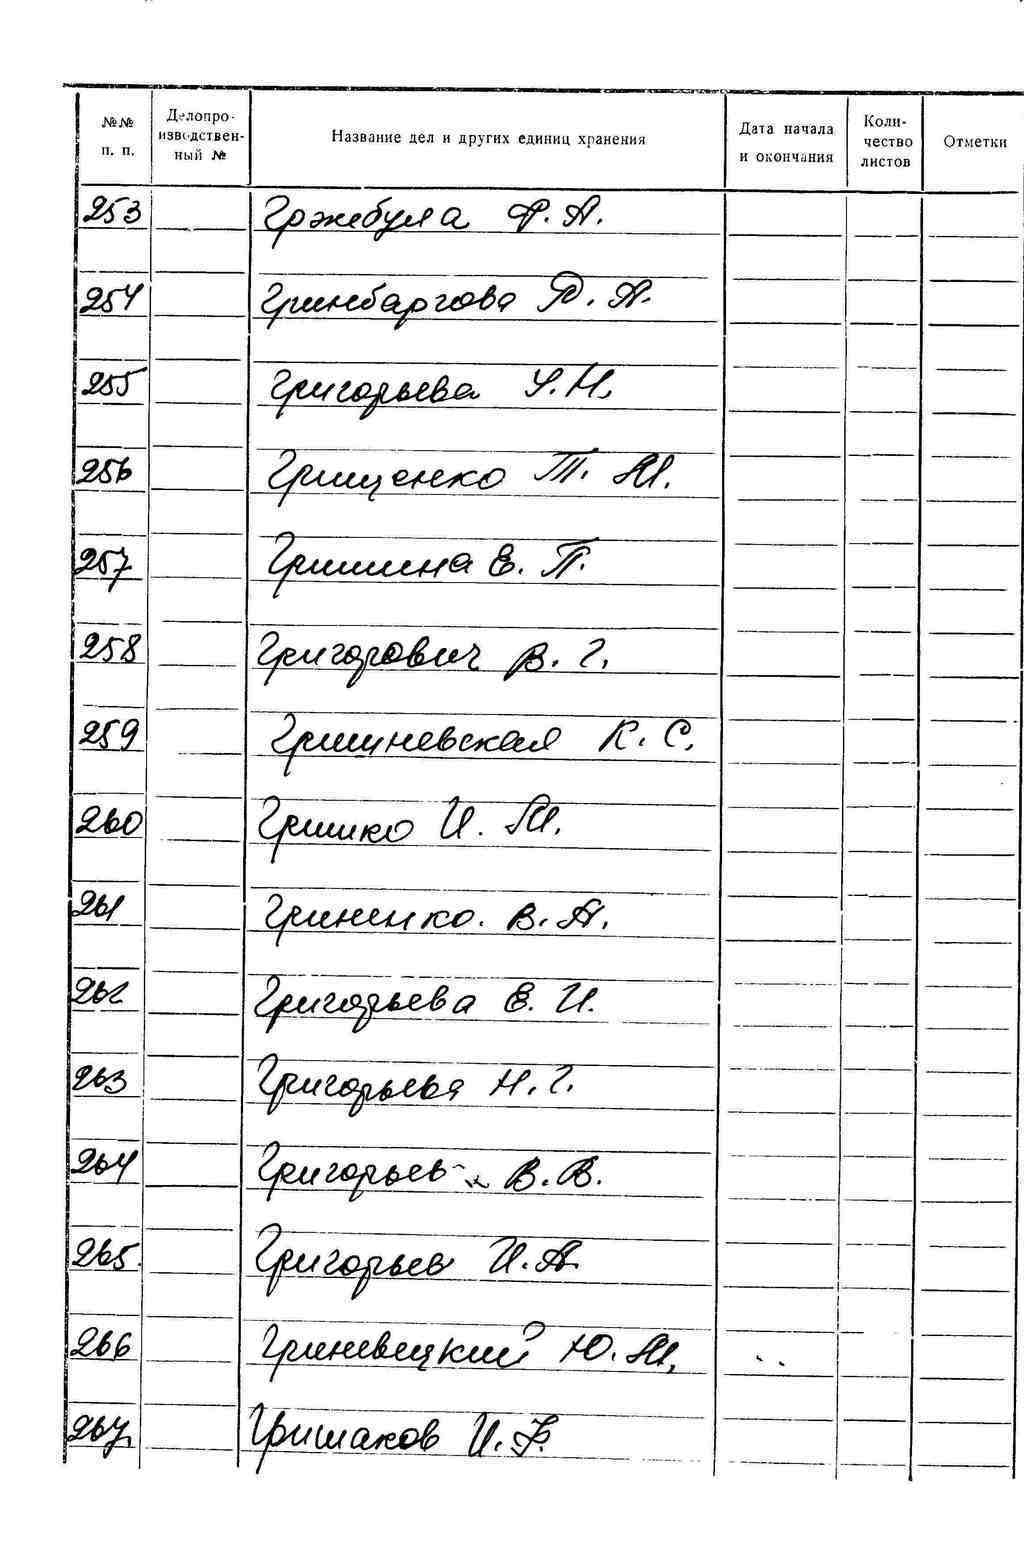 №№ п. п.
Делопроизводственный №
Название дел и других единиц хранения
Дата начала и окончания
Количество листов
Отметки
253 Грэжебула Ф. А.
254 Гринбаргова Р. А.
255 Григорьева У. Н.
256 Грищенко Т. М.
257 Гришина Е. П.
258 Григорович В. Г.
259 Гришневская К. С.
260 Гришко И. М.
261 Гриненко. В. А.
262 Григорьева Е. И.
263 Григорьева Н. Г.
264 Григорьев В. В.
265. Григорьев И. А
266 Гриневецкий Ю. М.
267. Гришаков И. Ф.